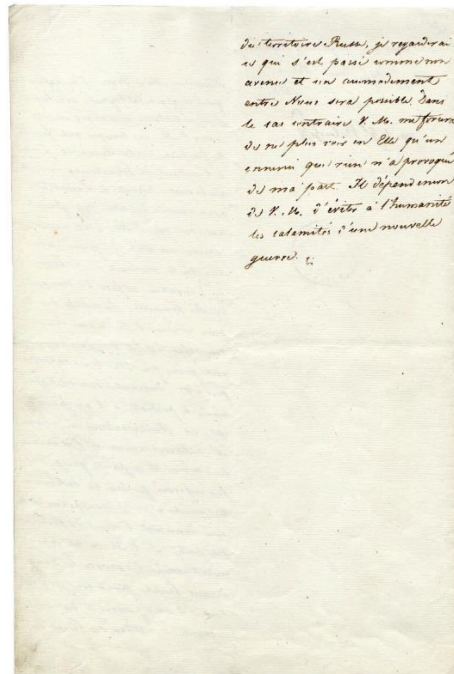 du territoire Russe, je regarderai
ce qui s'est passé comme non
avenu et un accomodement
entre Nous sera possible. Dans
le cas contraire V. M. me forcera
de ne plus voir en Elle qu'un
ennemi que rien n'a provoqué
de ma part. Il dépend encore
de V. M. d'éviter à l'humanité
les calamités d'une nouvelle
guerre.